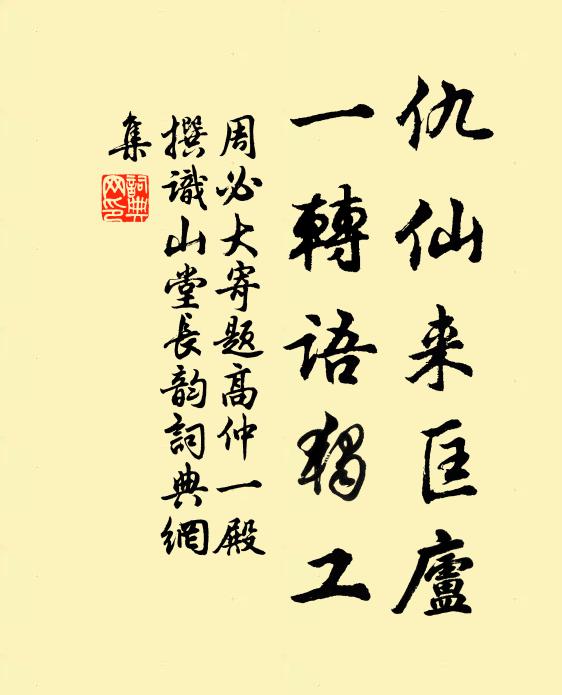 仇仙来匡廬
一轉語獨工
周必大寄題高仲一殿
撰識山堂長韵詞典網
集
詞典
网印